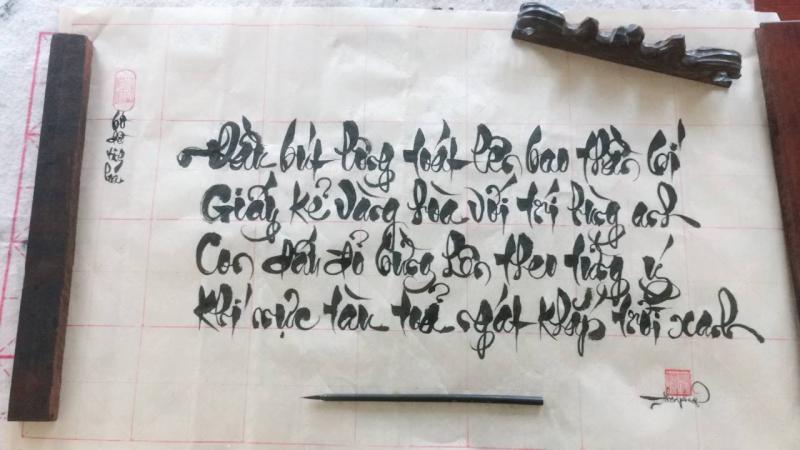 Đầu bút lông toát lên bao thần trí
Giấy kẻ vàng hòa với trí lung anh
Con dấu đỏ bừng lên theo từng ý
Khí mực tàu toả ngát khắp trời xanh